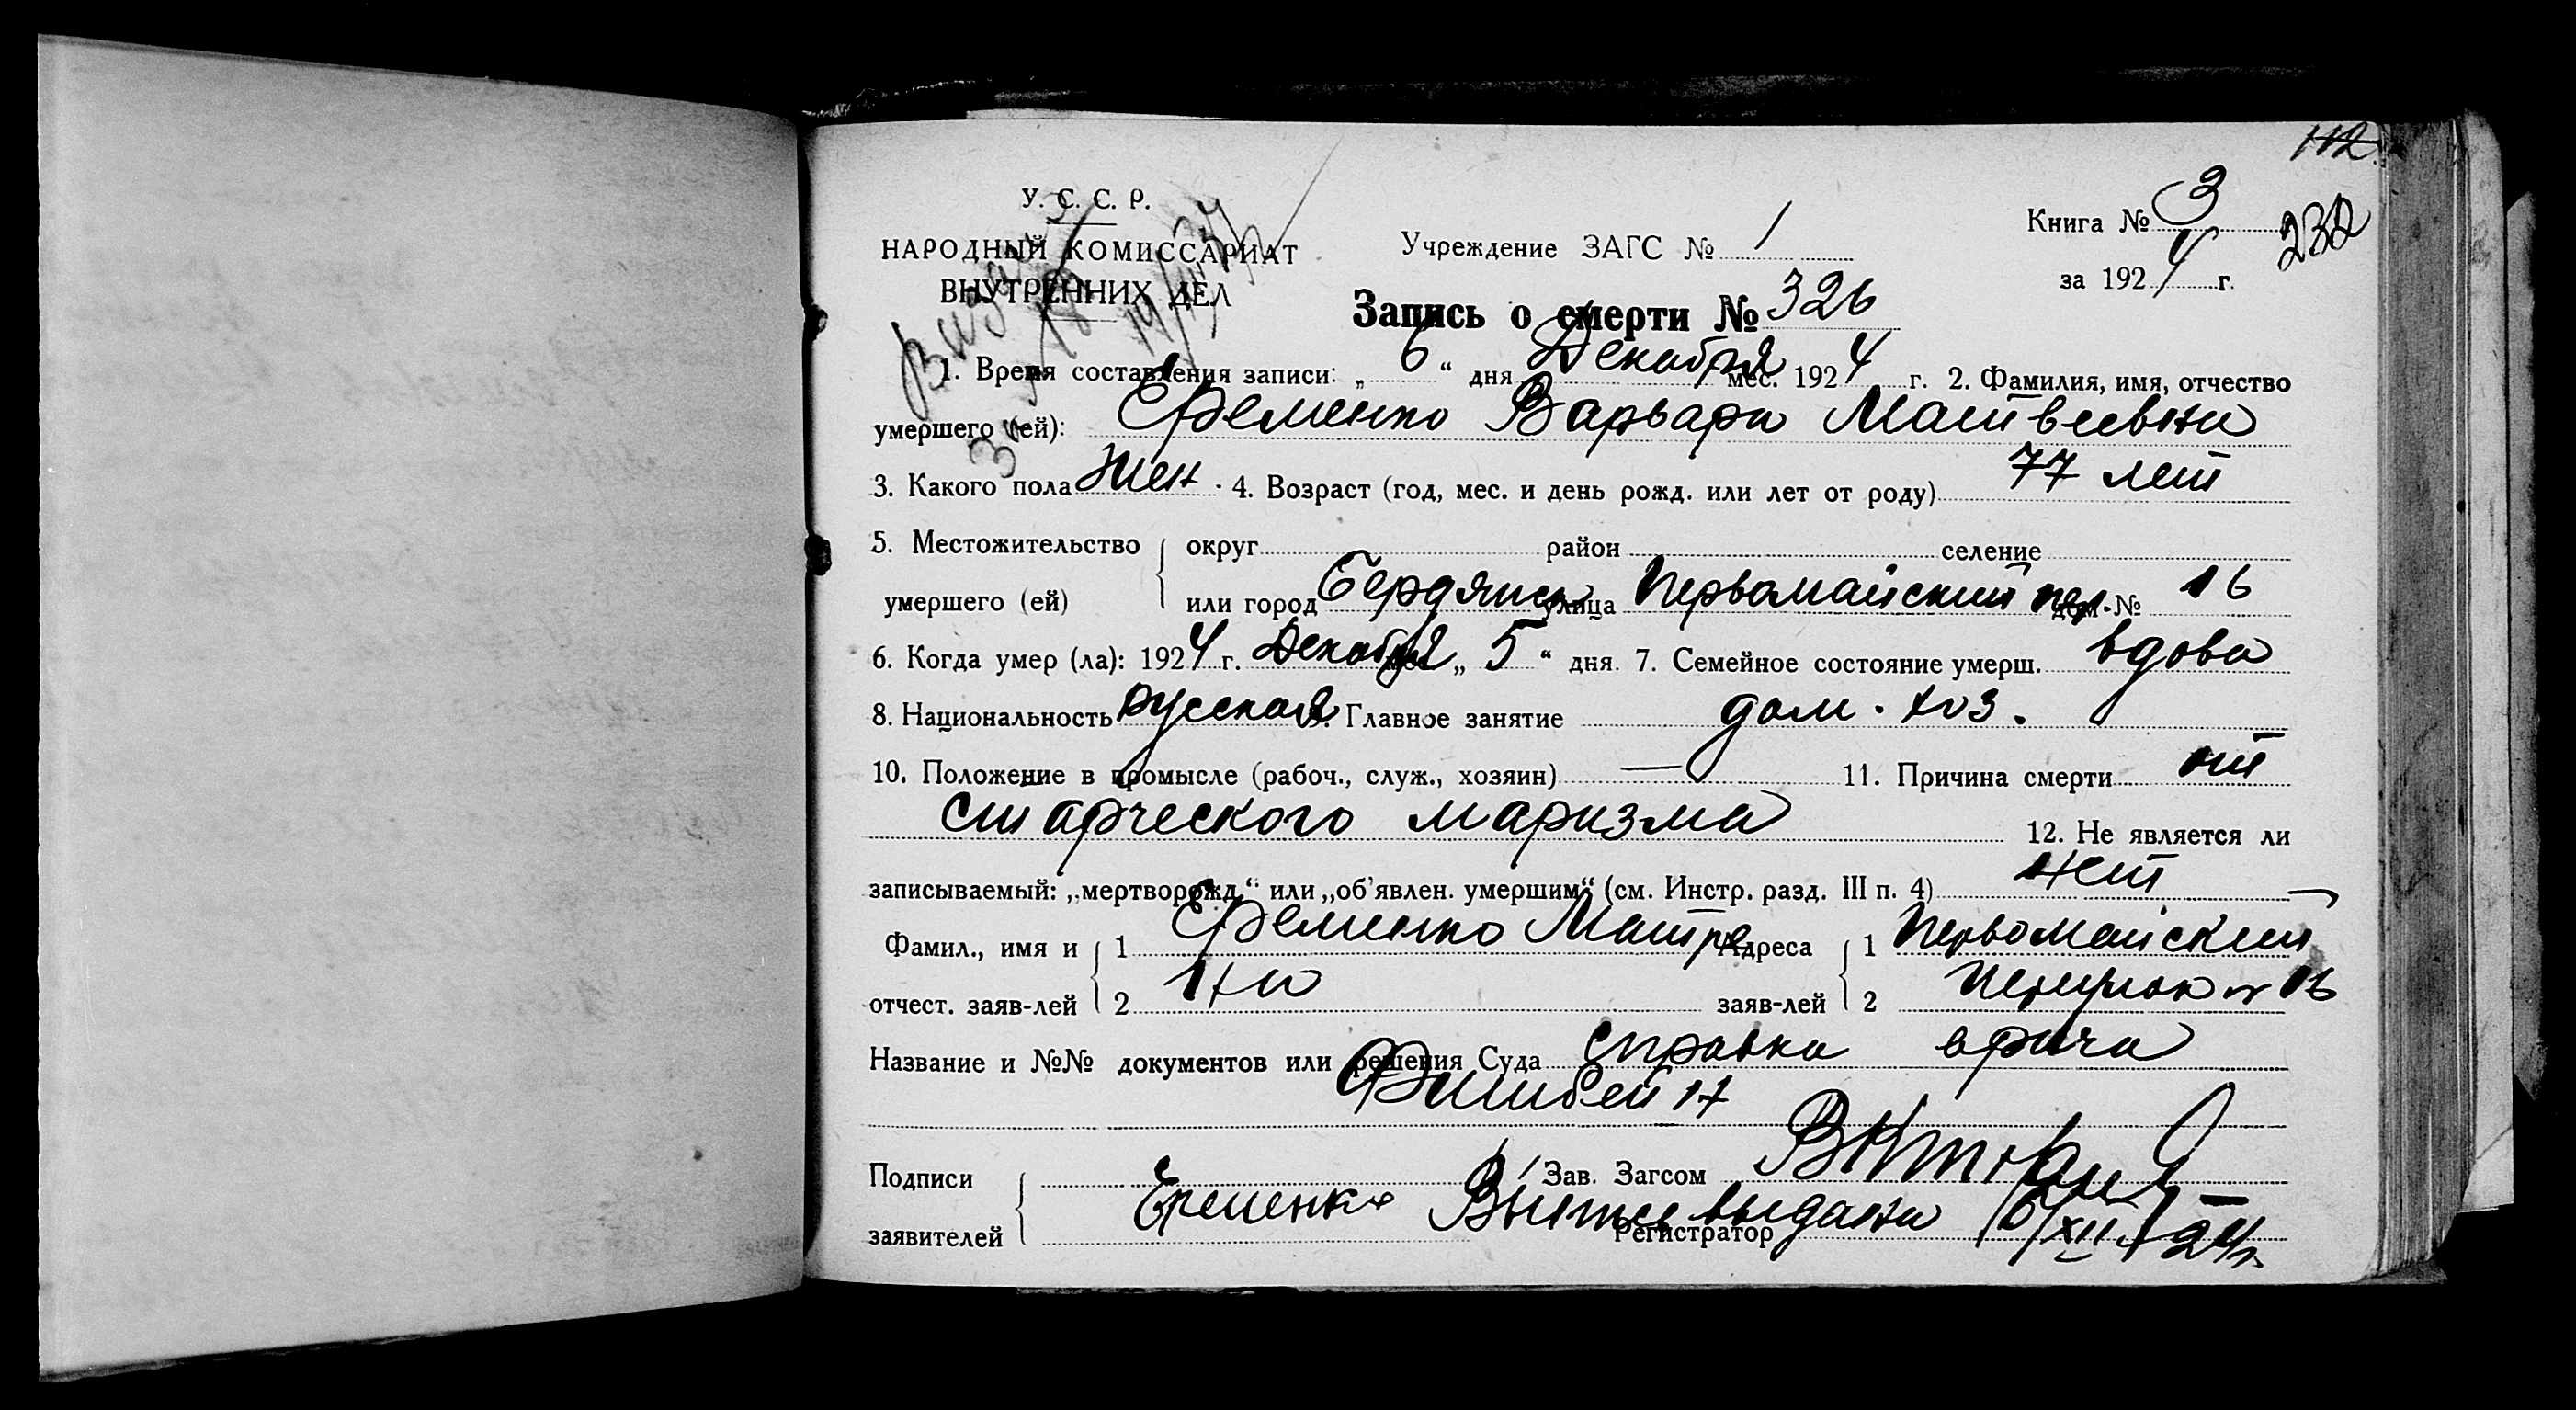 112
У. С. С. Р.
НАРОДНЫЙ КОМИССАРИАТ
ВНУТРЕННИХ ДЕЛ
Учреждение ЗАГС № 1
Книга № 3
232
за 1924 г.
Запись о смерти № 326
1. Время составления записи: „6“ дня Декабря мес. 1924 г. 2. Фамилия, имя, отчество
умершего (ей): Еременко Варвара Матвеевна
3. Какого пола жен. 4. Возраст (год, мес. и день рожд. или лет от роду) 77 лет
5. Местожительство округ район селение
умершего (ей) или город Бердянск улица Первомайский пер. дом № 16
6. Когда умер (ла): 1924 г. Декабря мес. „5“ дня. 7. Семейное состояние умерш. вдова
8. Национальность русская 9. Главное занятие дом. хоз.
10. Положение в промысле (рабоч., служ., хозяин) — 11. Причина смерти от
старческого маризма 12. Не является ли
записываемый: „мертворожд.“ или „об'явлен. умершим“ (см. Инстр. разд. III п. 4) нет
Фамил., имя и 1 Еременко Матре Адреса 1 Первомайский
отчест. заяв-лей 2 на заяв-лей 2 переулок № 16
Название и №№ документов или решения Суда справка врача
Подписи Зав. Загсом
заявителей Еременко выдана 6/XII 24 г.
Регистратор